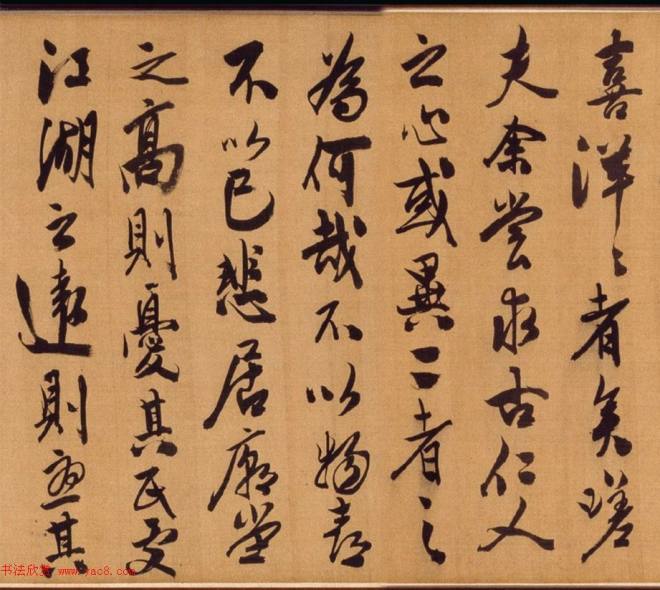 喜洋々者矣嗟
夫余嘗求古仁人
之心或異二者之
為何哉不以物喜
不以己悲居廟堂
之高則憂其民處
江湖之遠則憂其
书法欣赏 www.yac8.com